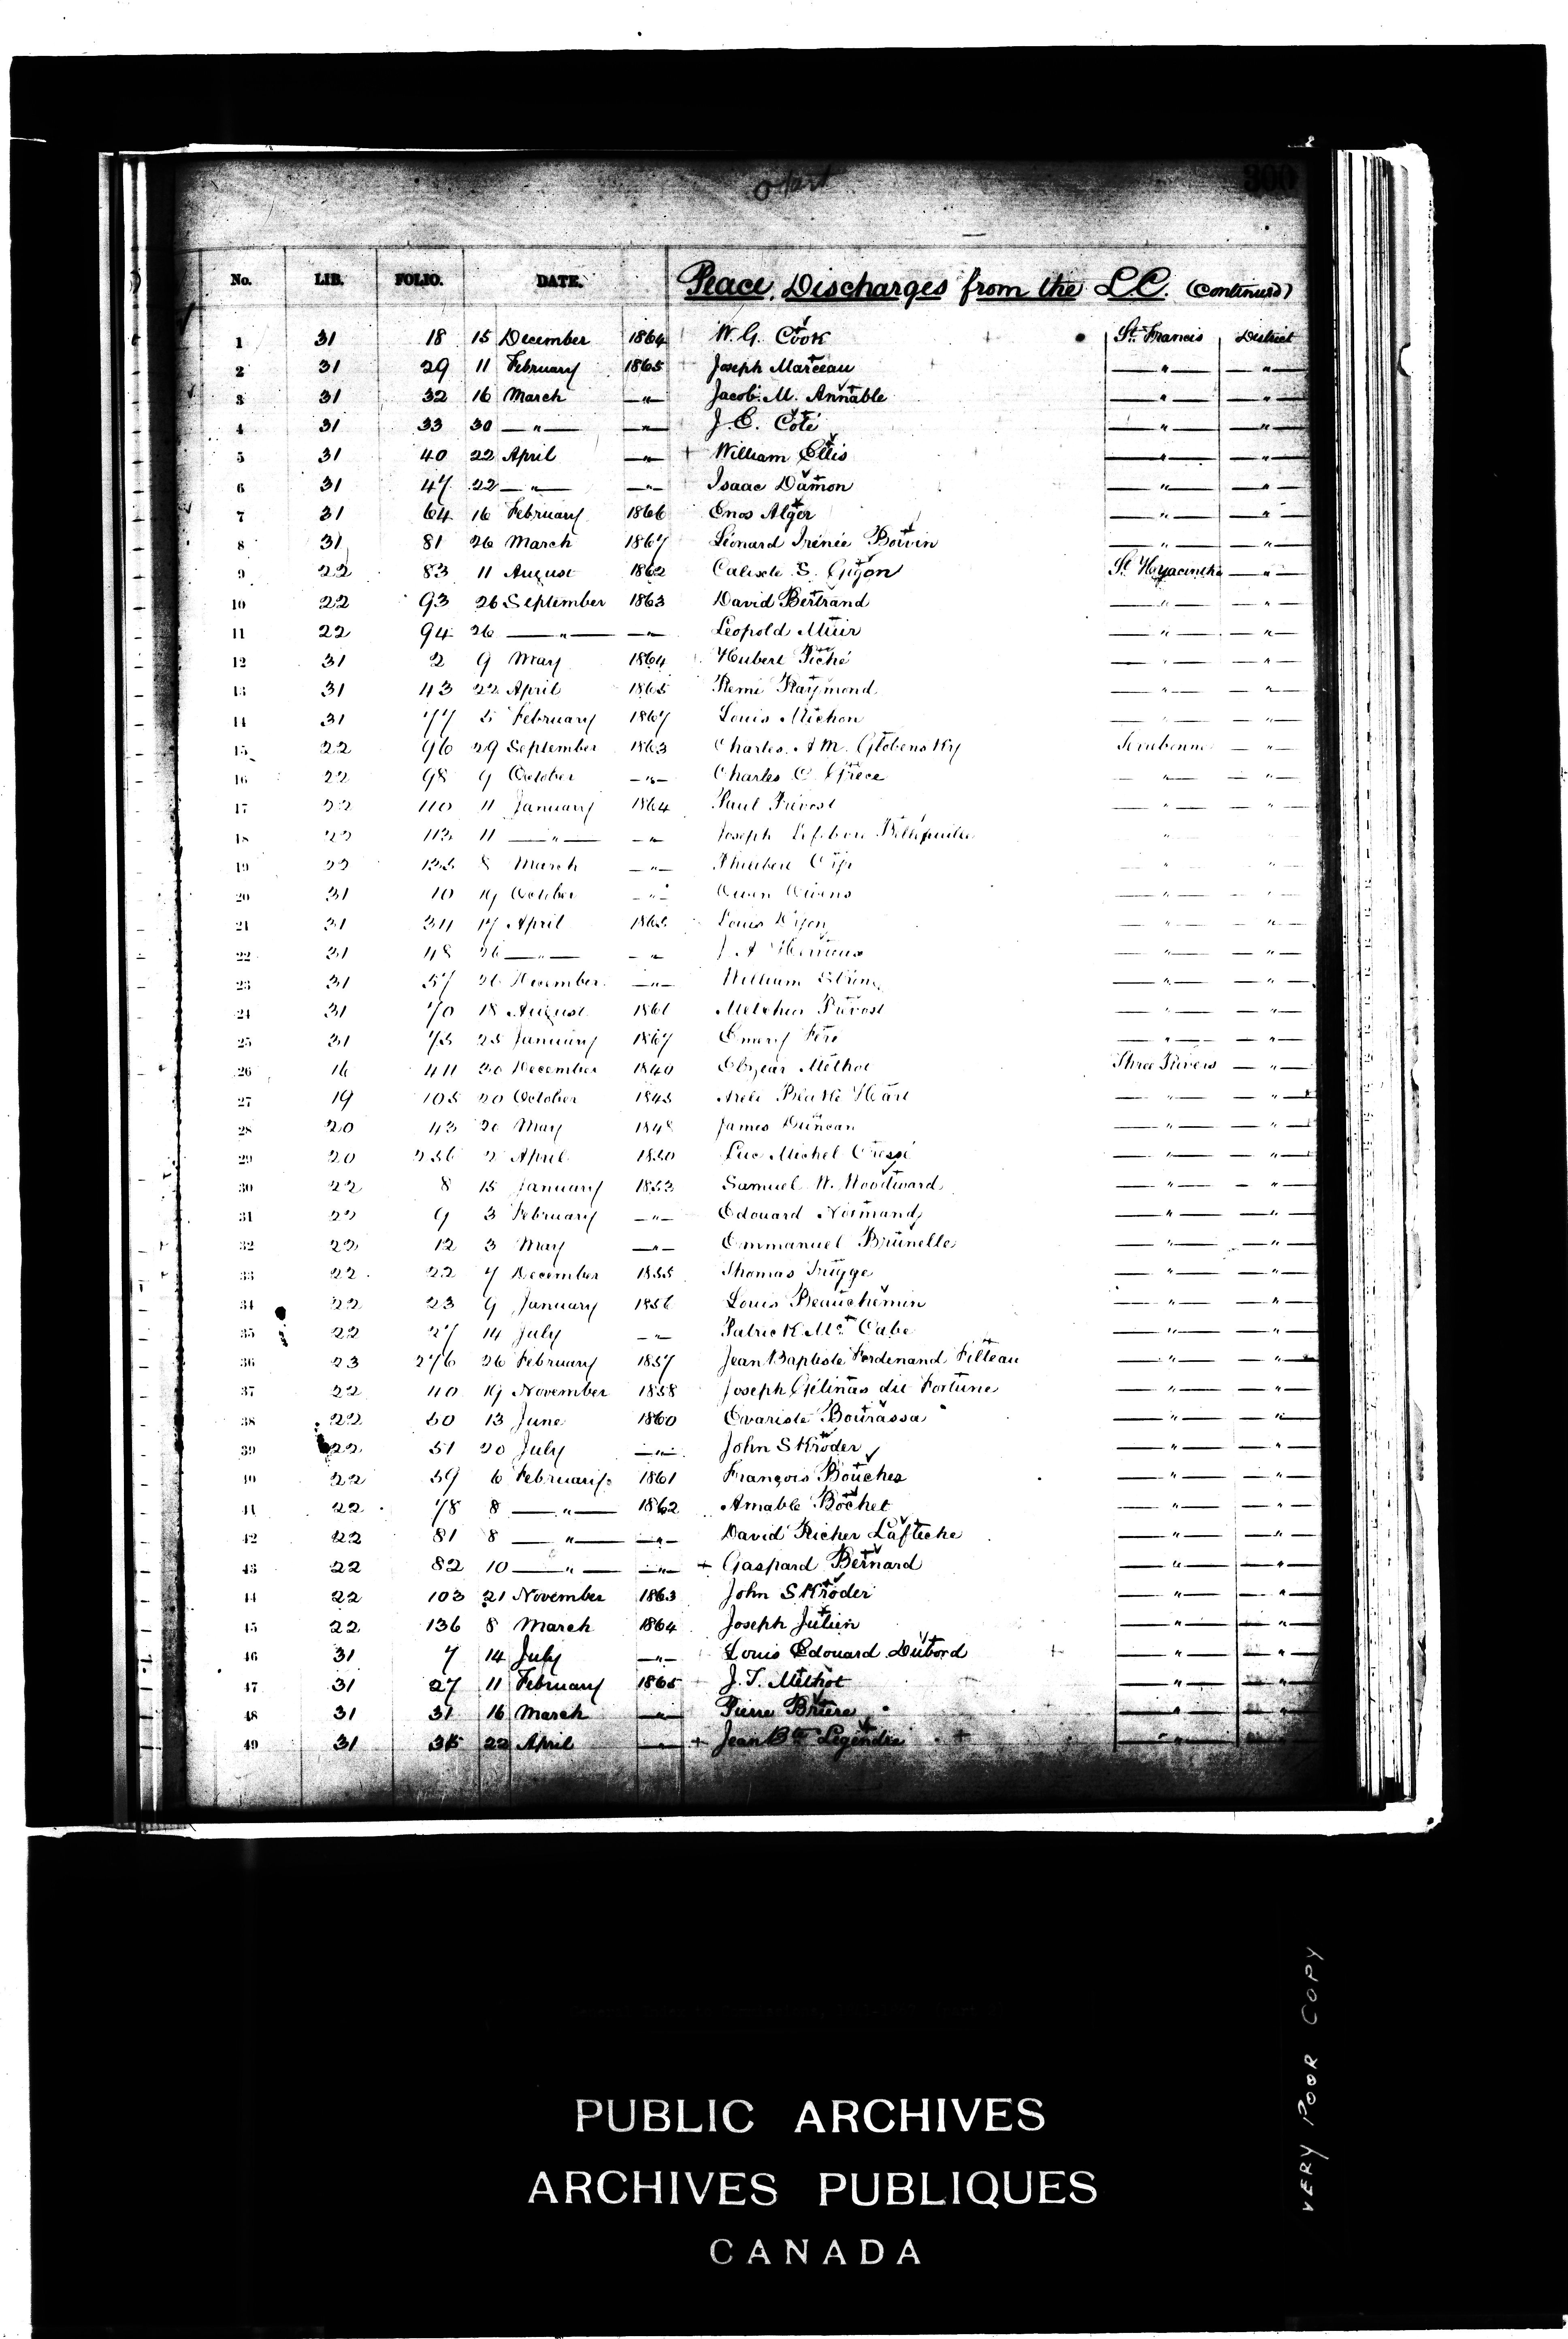 300
No. LIB. FOLIO. DATE. Peace, Discharges from the L.C. (Continued)
1 31 18 15 December 1864 W. G. Cook St. Francis District
2 31 29 11 February 1865 Joseph Marceau — " — — " —
3 31 32 16 March — " — Jacob. M. Annable — " — — " —
4 31 33 30 — " — — " — J. C. Coté — " — — " —
5 31 40 22 April — " — William Ellis — " — — " —
6 31 47 22 — " — — " — Isaac Damon — " — — " —
7 31 64 16 February 1866 Enos Alger — " — — " —
8 31 81 26 March 1867 Léonard Irénée Boivin — " — — " —
9 22 83 11 August 1862 Calixte S. Gigon St. Hyacinthe — " —
10 22 93 26 September 1863 David Bertrand — " — — " —
11 22 94 26 — " — — " — Leopold Muir — " — — " —
12 31 2 9 May 1864 Hubert Piché — " — — " —
13 31 43 22 April 1865 Remi Raymond — " — — " —
14 31 77 5 February 1867 Louis Michon — " — — " —
15 22 96 29 September 1863 Charles. A M. Globensky Terrebonne — " —
16 22 98 9 October — " — Charles C. Grece — " — — " —
17 22 110 11 January 1864 Paul Prévost — " — — " —
18 22 113 11 — " — — " — Joseph Lefebvre — " — — " —
19 22 8 March — " — — " — — " —
20 31 10 19 October — " — Owen Owens — " — — " —
21 31 34 17 April 1865 Louis Dion — " — — " —
22 31 48 26 — " — — " — J. A — " — — " —
23 31 57 26 — " — William — " — — " —
24 31 70 18 August 1866 Melchior Prévost — " — — " —
25 31 75 25 January 1867 Emery Féré — " — — " —
26 16 411 30 December 1840 Methot Three Rivers — " —
27 19 105 20 October 1845 Hart — " — — " —
28 20 43 20 May 1848 James Duncan — " — — " —
29 20 236 2 April 1850 Luc Michel Cressé — " — — " —
30 22 8 15 January 1853 Samuel W. Woodward — " — — " —
31 22 9 3 February — " — Edouard Normand — " — — " —
32 22 12 3 May — " — Emmanuel Brunelle — " — — " —
33 22 22 7 December 1855 Thomas Trigge — " — — " —
34 22 23 9 January 1856 Louis Beauchemin — " — — " —
35 22 27 14 July — " — Patrick Mc Cabe — " — — " —
36 23 276 26 February 1857 Jean Baptiste Ferdinand Filteau — " — — " —
37 22 40 19 November 1858 Joseph Gélinas dit Fortune — " — — " —
38 22 50 13 June 1860 Evariste Bourassa — " — — " —
39 22 51 20 July — " — John Skroder — " — — " —
40 22 59 6 February 1861 François Boucher — " — — " —
41 22 78 8 — " — 1862 Amable Bochet — " — — " —
42 22 81 8 — " — — " — David Richer Laflèche — " — — " —
43 22 82 10 — " — — " — + Gaspard Bernard — " — — " —
44 22 103 21 November 1863 John Skroder — " — — " —
45 22 136 8 March 1864 Joseph Julien — " — — " —
46 31 7 14 July — " — Louis Edouard Dubord — " — — " —
47 31 27 11 February 1865 J. T. Methot — " — — " —
48 31 31 16 March — " — Pierre Brière — " — — " —
49 31 35 22 April — " — + Jean Bte Legendre — " — — " —
VERY POOR COPY
PUBLIC ARCHIVES
ARCHIVES PUBLIQUES
CANADA